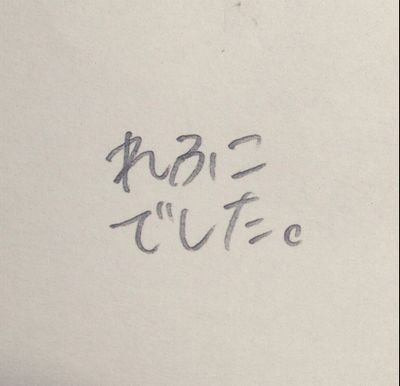 れふこ
でした。